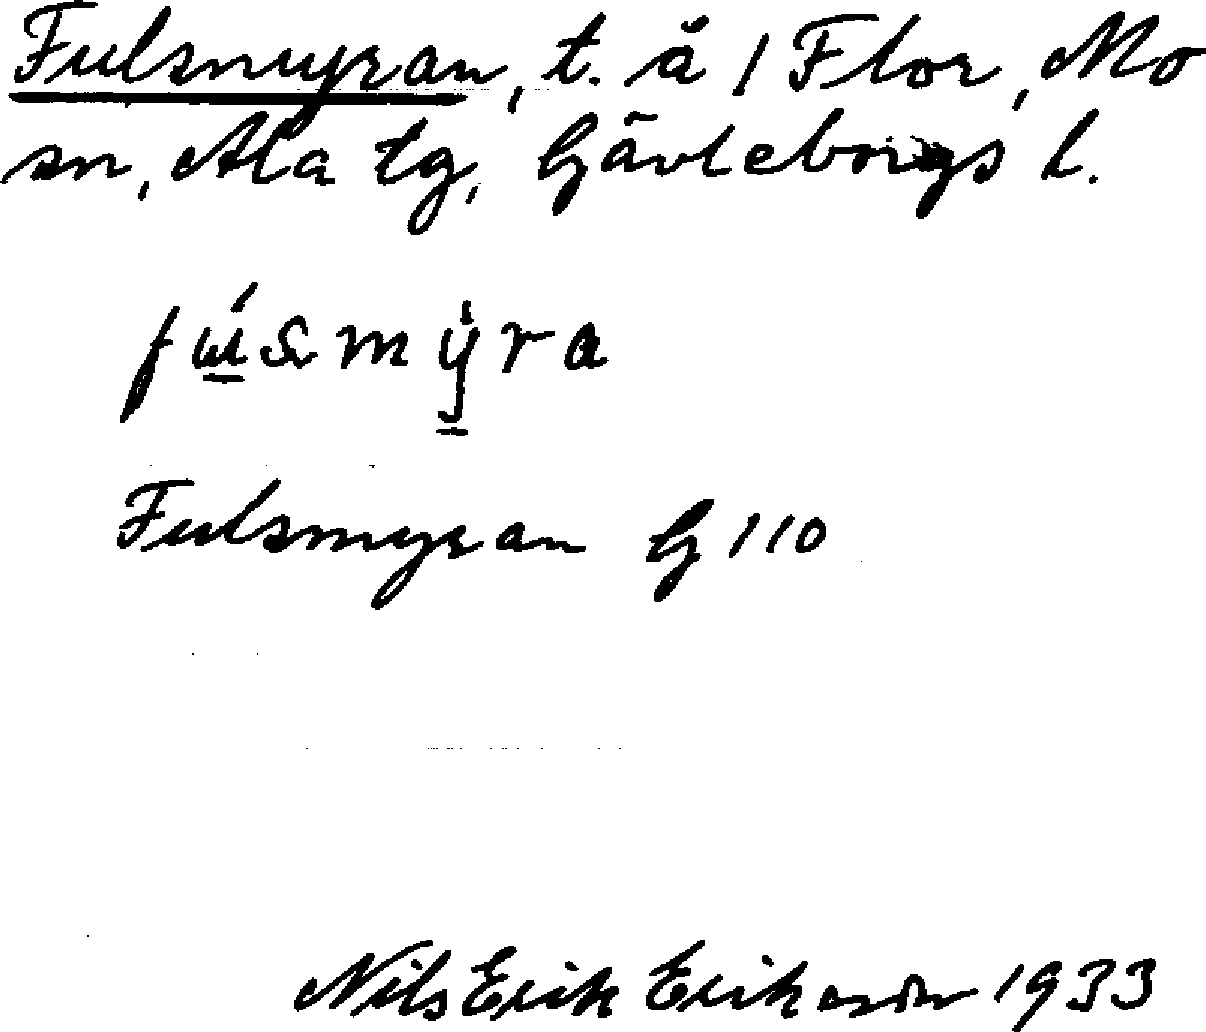 Fulsmyran, t. å 1 Flor, Mo
sn, Ala tg, Gävleborgs l.
fúsmỳra
Fulsmyran G 110
Nils Erik Eriksson 1933